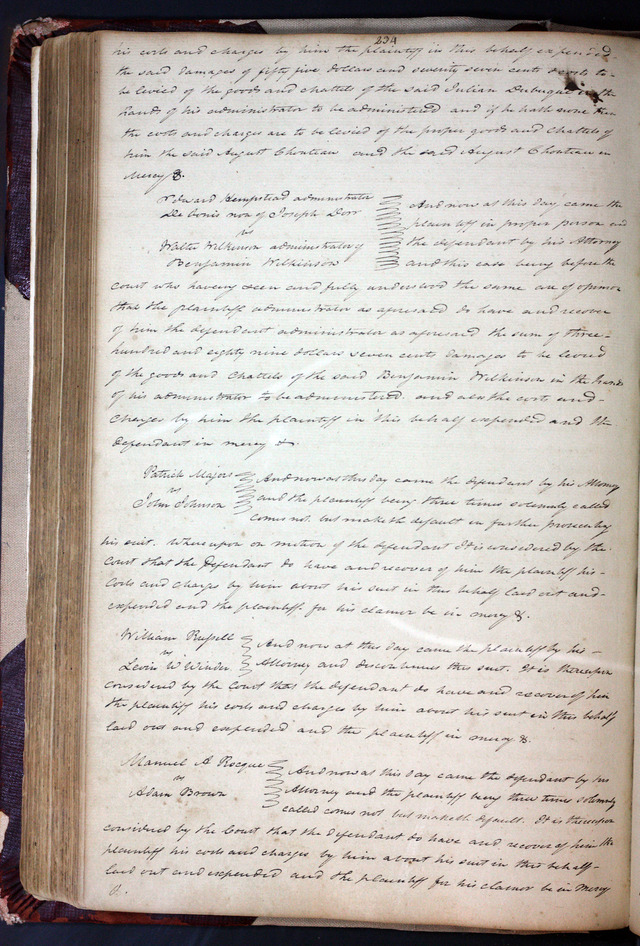 234
his costs and charges by him the plaintiff in this behalf expended
the said damages of fifty five dollars and seventy seven cents & costs to
be levied of the goods and chattels of the said Julian Dubuque in the
hands of his administrator to be administered and if he hath none then
the costs and charges are to be levied of the proper goods and chattels of
him the said August Chouteau and the said August Chouteau in
mercy &.
Edward Hempstead administrator
De bonis non of Joseph Dorr
vs
Walter Wilkinson administrator of
Benjamin Wilkinson
And now at this day came the
plaintiff in proper person and
the defendant by his Attorney
and this case being before the
Court who having seen and fully understood the same are of opinion
that the plaintiff administrator as aforesaid do have and recover
of him the defendant administrator as aforesaid the sum of three-
hundred and eighty nine dollars seven cents damages to be levied
of the goods and Chattels of the said Benjamin Wilkinson in the hands
of his administrator to be administered and also the costs and-
charges by him the plaintiff in this behalf expended and the
defendant in mercy &
Patrick Majors
vs
John Johnson
And now at this day came the defendant by his Attorney
and the plaintiff being three times solemnly called
comes not, but maketh default in further prosecuting
his suit. Whereupon on motion of the defendant It is considered by the
Court that the defendant do have and recover of him the plaintiff his-
costs and charges by him about his suit in this behalf laid out and-
expended and the plaintiff for his clamor be in mercy &.
William Russell
vs
Levin W Winder
And now at this day came the plaintiff by his-
Attorney and discontinues this suit. It is thereupon
considered by the Court that the defendant do have and recover of him
the plaintiff his costs and charges by him about his suit in this behalf
laid out and expended and the plaintiff in mercy &.
Manuel A Rocque
vs
Adam Brown
And now at this day came the defendant by his
Attorney and the plaintiff being three times solemnly
called comes not but maketh default. It is thereupon
considered by the Court that the defendant do have and recover of him the
plaintiff his costs and charges by him about his suit in this behalf-
laid out and expended and the plaintiff for his clamor be in mercy
&.